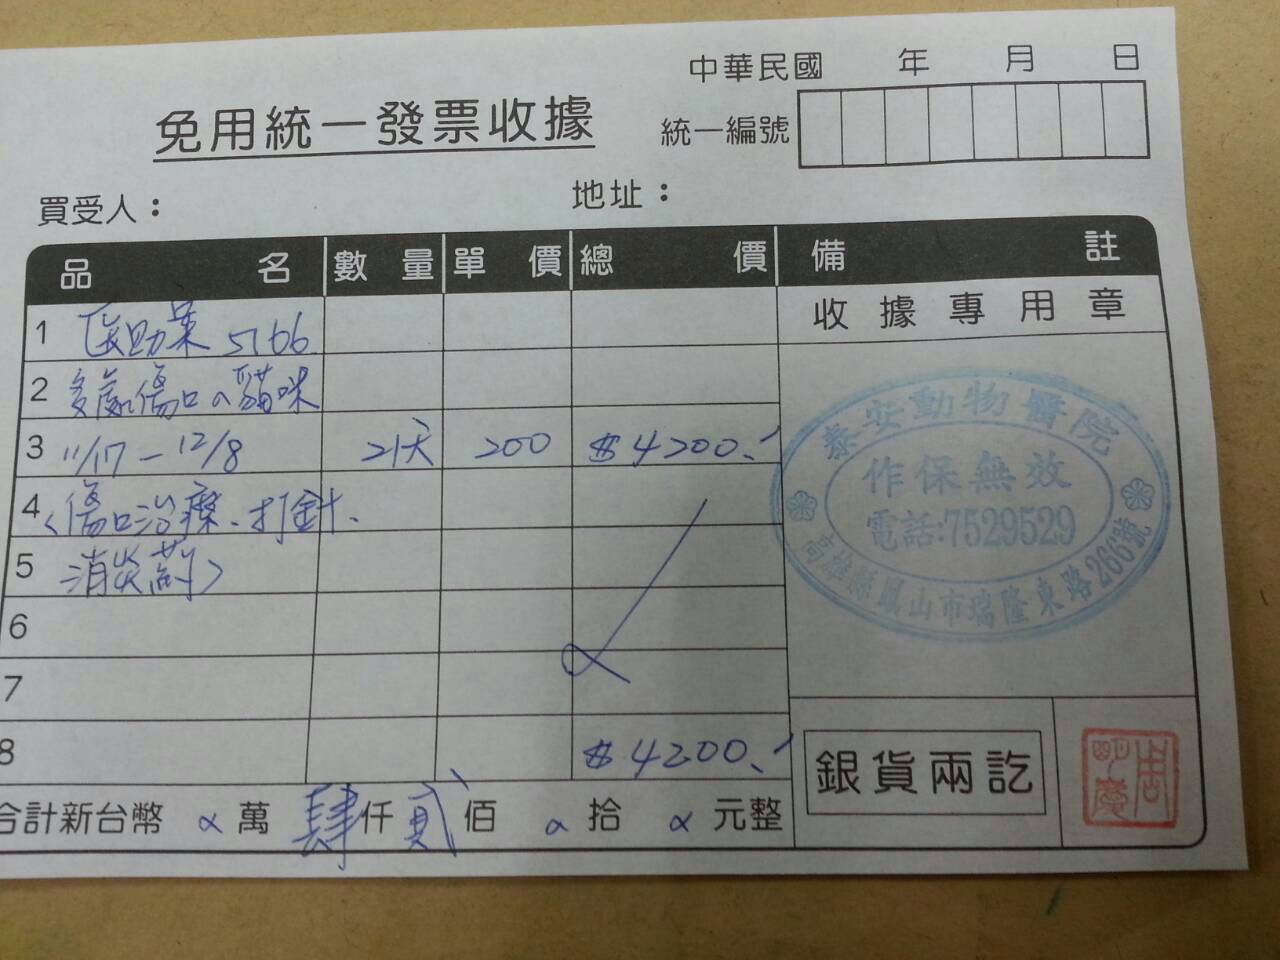 中華民國 年 月 日
免用統一發票收據
統一編號
買受人：
地址：
品名 數量 單價 總價 備註
收據專用章
1 醫助案 5166
2 多處傷口の貓咪
3 11/17 - 12/8 21天 200 $4200.
4 (傷口治療、打針、
5 消炎藥)
6
7
8 $4200.
合計新台幣 萬 肆仟 貳佰 拾 元整
銀貨兩訖
泰安動物醫院
作保無效
電話:7529529
高雄縣鳳山市瑞隆東路266號